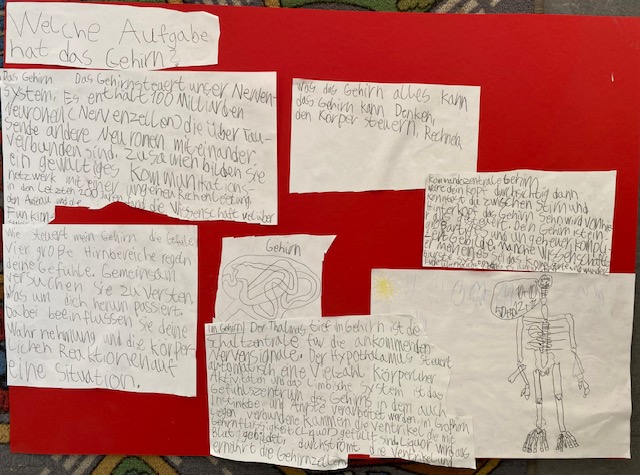 Welche Aufgabe
hat das Gehirn?
Das Gehirn Das Gehirn steuert unser Nerven-
system. Es enthält 100 Milliarden
Neuronen (Nervenzellen) die über Tau-
sende andere Neuronen miteinander
verbunden sind. zusamen bilden sie
ein gewaltiges Kommunikations-
netzwerk mit einer ungeheuren Rechenleistung.
in den Letzten 200 Jahren
den Aufbau und die und die Wissenschaft viel über
Funktion
Was das Gehirn alles kann
das Gehirn kann Denken,
den Körper steuern, Rechnen
Kommandozentrale Gehirn
wäre dein Kopf durchsichtig dann
könntest du zwischen Stirn und
Hinterkopf das Gehirn sehn
gesteuert. Dein Gehirn ist ein
und ungeheuer kompli-
manche Wissenschaftler
Wie steuert mein Gehirn die Gefühle
Vier große Hirnbereiche regeln
deine Gefühle. Gemeinsam
versuchen sie zu Versten
was um dich herum passiert.
Dabei beeinflussen sie deine
Wahrnehmung und die Körper-
lichen Reaktionen auf
Eine Situation.
Gehirn
im Gehirn) Der Thalamus tief im Gehirn ist die
Schaltzentrale für die ankommenden
Nervensignale. Der Hypothalamus steuert
automatisch eine Vielzahl Körperlicher
Aktivitäten und das Limbische System ist das
Gefühlszentrum des Gehirns in dem auch
Instinkte und Ängste verarbeitet werden. im Gehirn
Liegen verbundene Kammern die Ventrikel die mit
Gehirnflüssigkeit (Liquor) gefüllt sind. Liquor wird aus
Blut gebildet, durchströmt die Ventrikel und
ernährt die Gehirnzellen